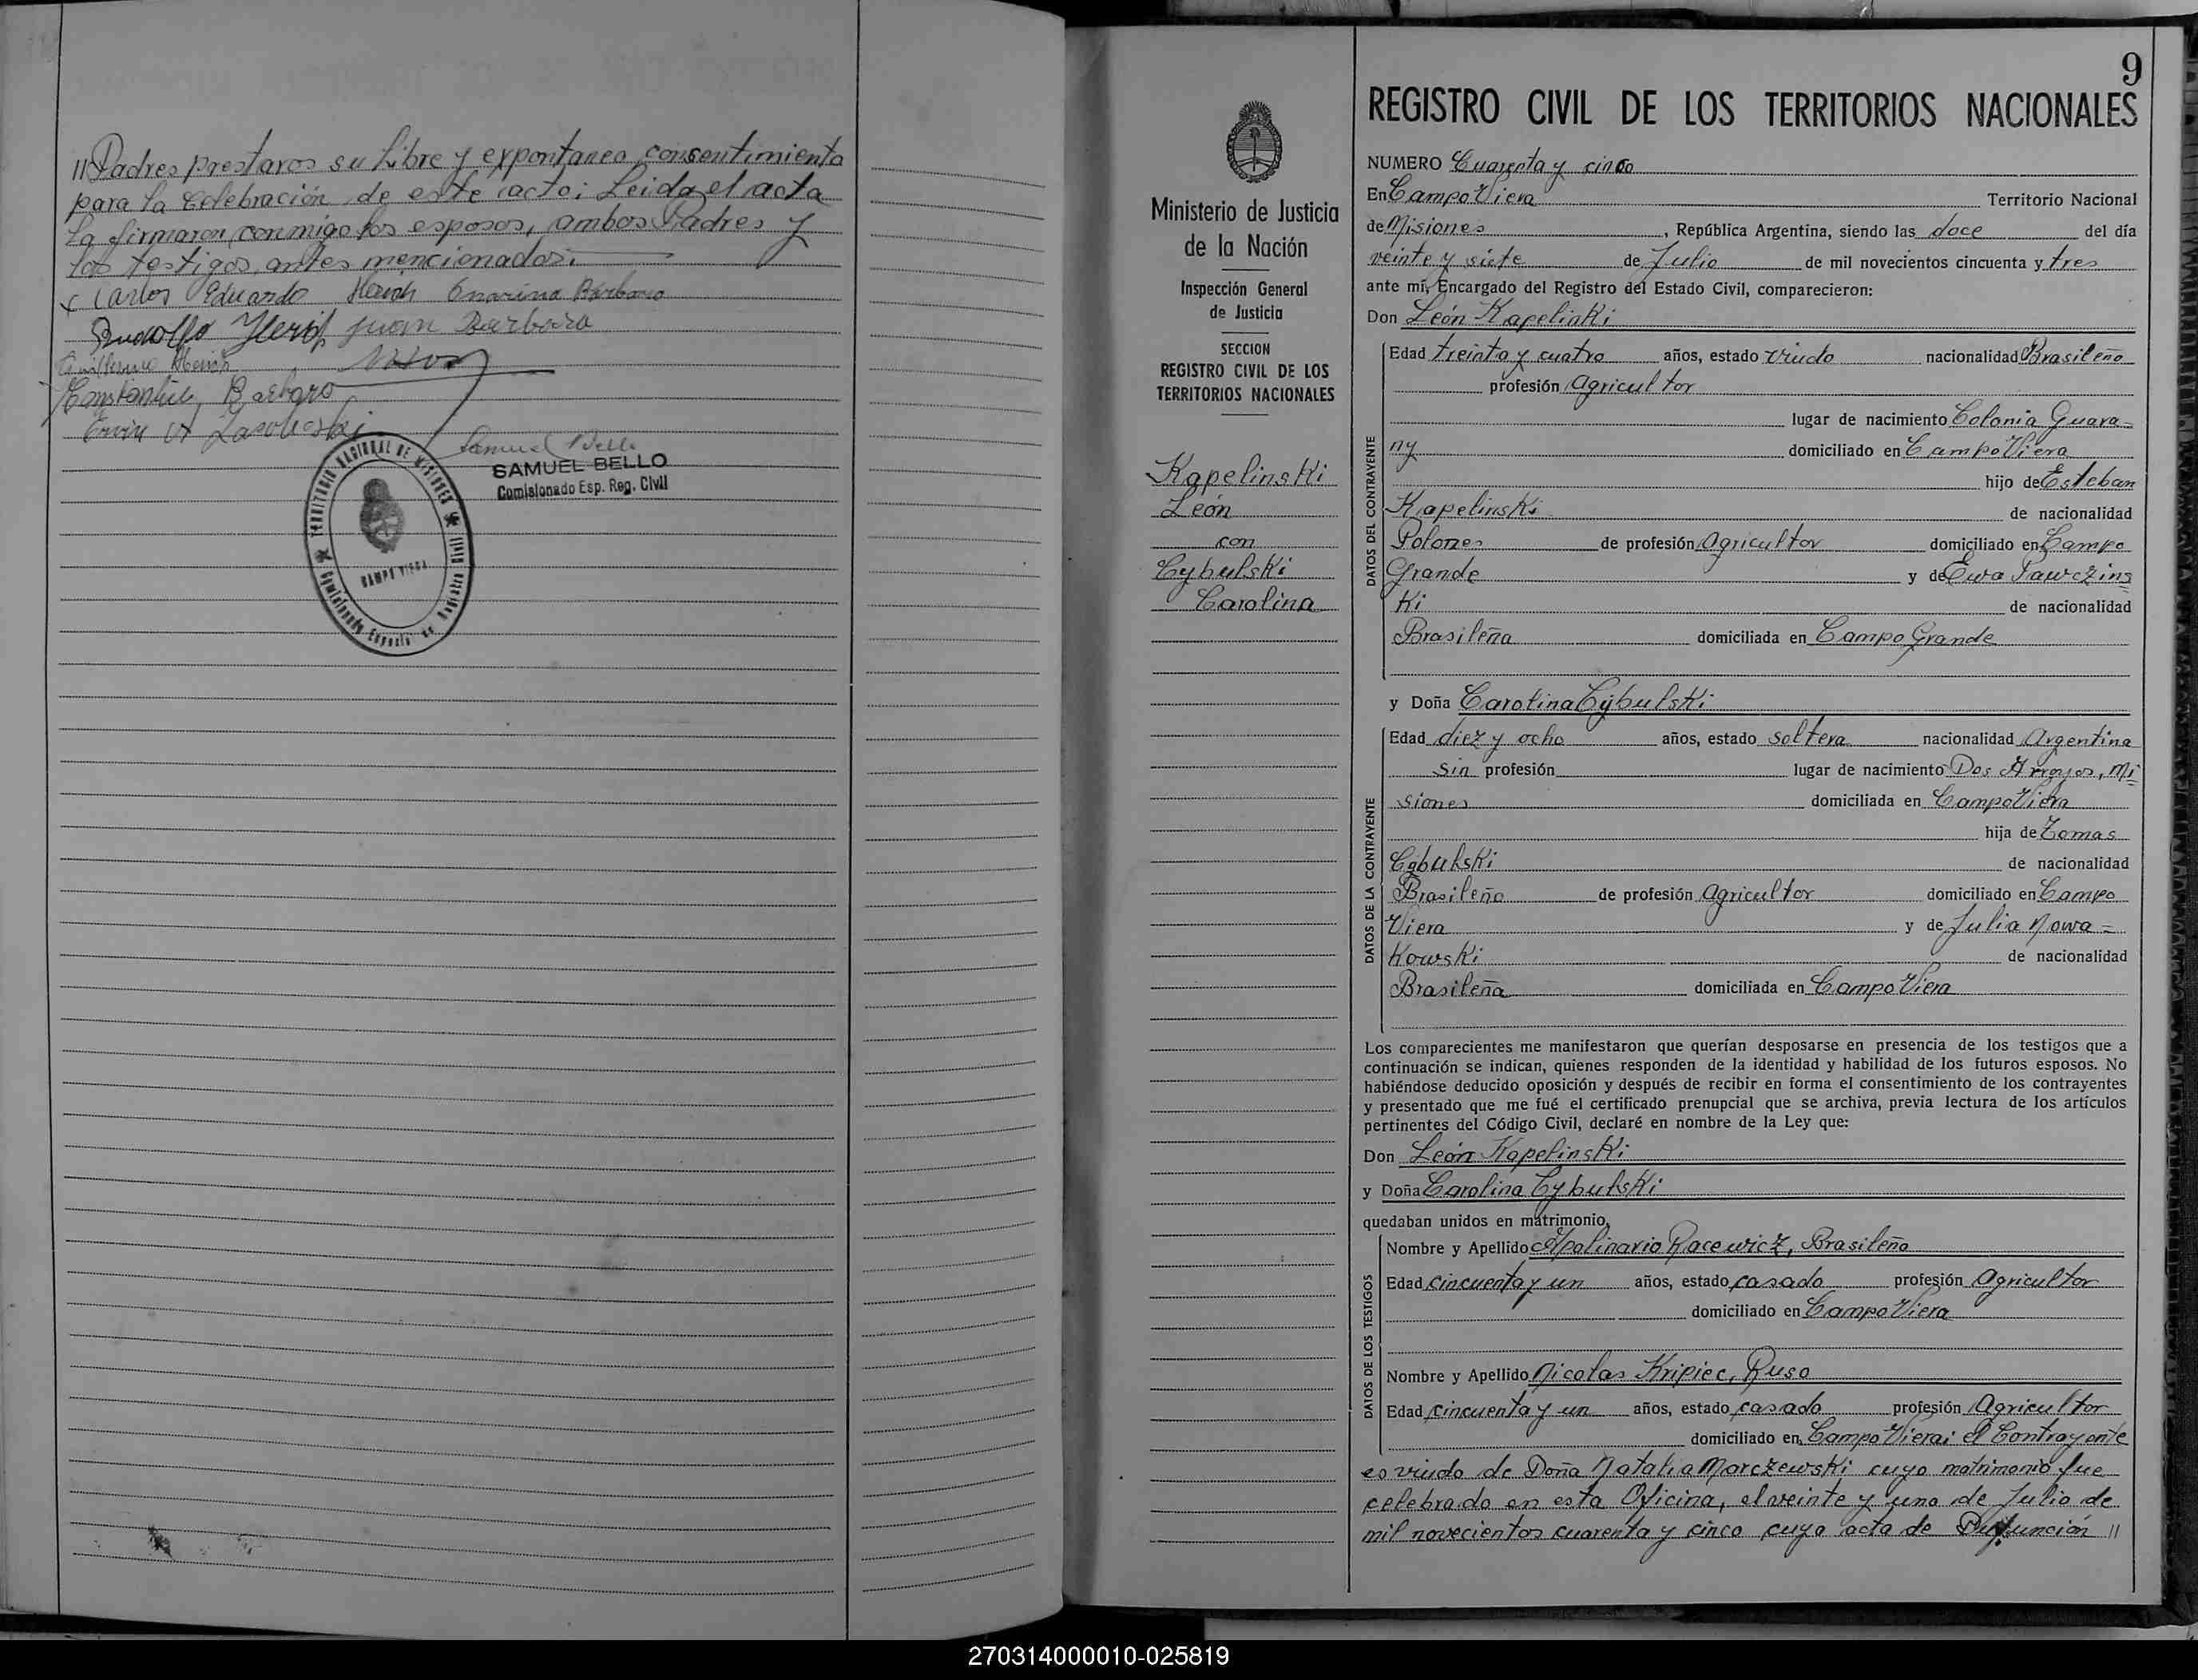 // Padres prestaron su libre y expontaneo consentimiento
para la celebración de este acto; Leida el acta
la firmaron conmigo los esposos, ambos Padres y
los testigos antes mencionados.
Carlos Eduardo
Juan Barbaro
Barbaro
Samuel Bello
SAMUEL BELLO
Comisionado Esp. Reg. Civil
TERRITORIO NACIONAL DE MISIONES
CAMPO VIERA
9
REGISTRO CIVIL DE LOS TERRITORIOS NACIONALES
Ministerio de Justicia
de la Nación
Inspección General
de Justicia
SECCION
REGISTRO CIVIL DE LOS
TERRITORIOS NACIONALES
Kapelinski
León
con
Cybulski
Carolina
NUMERO Cuarenta y cinco
En Campo Viera Territorio Nacional
de Misiones, República Argentina, siendo las doce del día
veinte y siete de Julio de mil novecientos cincuenta y tres
ante mí, Encargado del Registro del Estado Civil, comparecieron:
Don León Kapelinki
DATOS DEL CONTRAYENTE
Edad treinta y cuatro años, estado viudo nacionalidad Brasileño
profesión Agricultor
lugar de nacimiento Colonia Guara-
ny domiciliado en Campo Viera
hijo de Esteban
Kapelinski de nacionalidad
Polones de profesión Agricultor domiciliado en Campo
Grande y de Ewa Pawczins
ki de nacionalidad
Brasileña domiciliada en Campo Grande
y Doña Carolina Cybulski
DATOS DE LA CONTRAYENTE
Edad diez y ocho años, estado soltera nacionalidad Argentina
sin profesión lugar de nacimiento Dos Arroyos, Mi
siones domiciliada en Campo Viera
hija de Tomas
Cybulski de nacionalidad
Brasileño de profesión Agricultor domiciliado en Campo
Viera y de Julia Nowa=
Kowski de nacionalidad
Brasileña domiciliada en Campo Viera
Los comparecientes me manifestaron que querían desposarse en presencia de los testigos que a
continuación se indican, quienes responden de la identidad y habilidad de los futuros esposos. No
habiéndose deducido oposición y después de recibir en forma el consentimiento de los contrayentes
y presentado que me fué el certificado prenupcial que se archiva, previa lectura de los artículos
pertinentes del Código Civil, declaré en nombre de la Ley que:
Don León Kapelinski
y Doña Carolina Cybulski
quedaban unidos en matrimonio,
DATOS DE LOS TESTIGOS
Nombre y Apellido Apolinario Racewicz, Brasileño
Edad cincuenta y un años, estado casado profesión Agricultor
domiciliado en Campo Viera
Nombre y Apellido Nicolas Kripiec, Ruso
Edad cincuenta y un años, estado casado profesión Agricultor
domiciliado en Campo Viera; el Contrayente
es viudo de Doña Natalia Marczewski cuyo matrimonio fue
celebrado en esta Oficina, el veinte y uno de Julio de
mil novecientos cuarenta y cinco cuyo acta de Defunción //
270314000010-025819